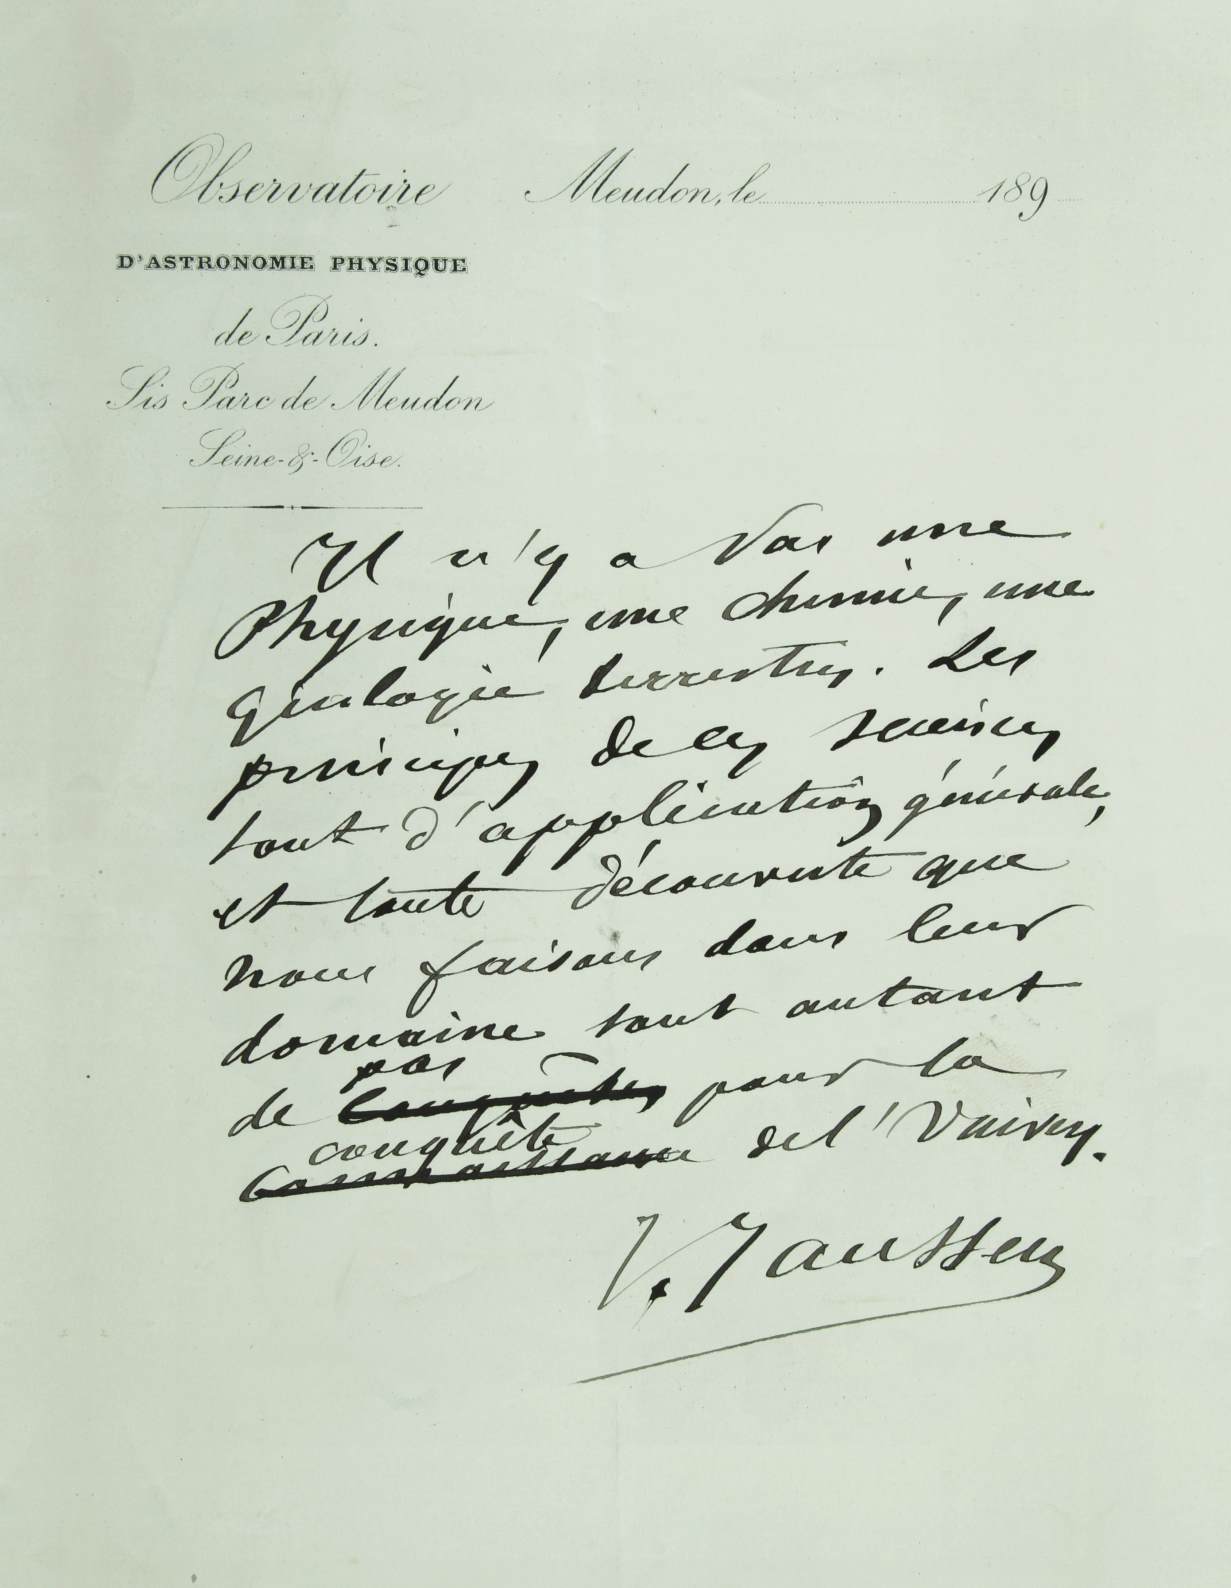 Observatoire Meudon, le 189
D'ASTRONOMIE PHYSIQUE
de Paris.
Sis Parc de Meudon
Seine-&-Oise.
Il n'y a pas une
Physique, une chimie, une
géologie terrestres. Les
principes de ces sciences
sont d'application générale,
et toute découverte que
nous faisons dans leur
domaine sont autant
pas
de conquêtes pour la
conquête
connaissance de l'Univers.
J. Janssen